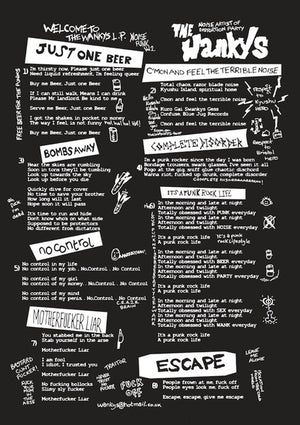 WELCOME TO
THE WANKYS L.P. NOISE
PUNX.
JUST ONE BEER
I'm thirsty now, Please just one beer
Need liquid refreshment, Im feeling queer
Buy me one Beer, Just one Beer
If I can still walk, Means I can drink
Please Mr Landlord, Be kind to me
Serve me Beer, Just one Beer
I got the shakes in pocket no money
The way I feel is not funny
Buy me one Beer, Just one Beer
FREE BEER FOR THE PUNX
BOMBS AWAY
Hear the skies are rumbling
Soon in its they'll be tumbling
Look up towards the sky
Look up before you die
Quickly dive for cover
No time to save your brother
How long will it last
Hope soon it will pass
No time to run and hide
Dont know who's on what side
Supposed to be protectors
No different from dictators
NO CONTROL
No control in my life
No control in my job. No.Control. No Control
No control of my girl
No control of my money. No.Control. No Control
No control of my mind
No control of my penis. No.Control. No Control
MOTHERFUCKER LIAR
You stabbed me in the back
Stab yourself in the arse
Motherfucker Liar
I am fool
I idiot, I trusted you
Motherfucker Liar
No fucking bollocks
Slimy sly fucker
Motherfucker Liar
TRAITOR
wankys@hotmail.co.uk
THE WANKYS
NOISE ARTIST OF
DISTORTION PARTY
C'MON AND FEEL THE TERRIBLE NOISE
Total chaos, razor blade noise
Kyushu Island spiritual home
Cmon and feel the terrible noise
Kuro Gai Swankys Gess
Confuse Blue Jug Records
Cmon and feel the terrible noise
Cmon and feel the terrible noise
COMPLETE DISORDER
Im a punk rocker since the day I was born
Bondage trousers, swank glasses I've seen it all
Pogo at the gig sniff glue chaotic discord
Wanna riot, fucked up drunk, complete disorder
IT'S A PUNK ROCK LIFE
In the morning and late at night
Afternoon and twilight
Totally obsessed with PUNK everyday
In the morning and late at night
Afternoon and twilight
Totally obsessed with NOISE everyday
It's a punk rock life
It's a punk rock life
In the morning and late at night
Afternoon and twilight
Totally obsessed with PARTY everyday
It's a punk rock life
It's a punk rock life
In the morning and late at night
Afternoon and twilight
Totally obsessed with SEX everyday
In the morning and late at night
Afternoon and twilight
Totally obsessed with WANK everyday
It's a punk rock life
It's a punk rock life
ESCAPE
People frown at me, fuck off
People eyes look me, fuck off
Escape, escape, give me escape